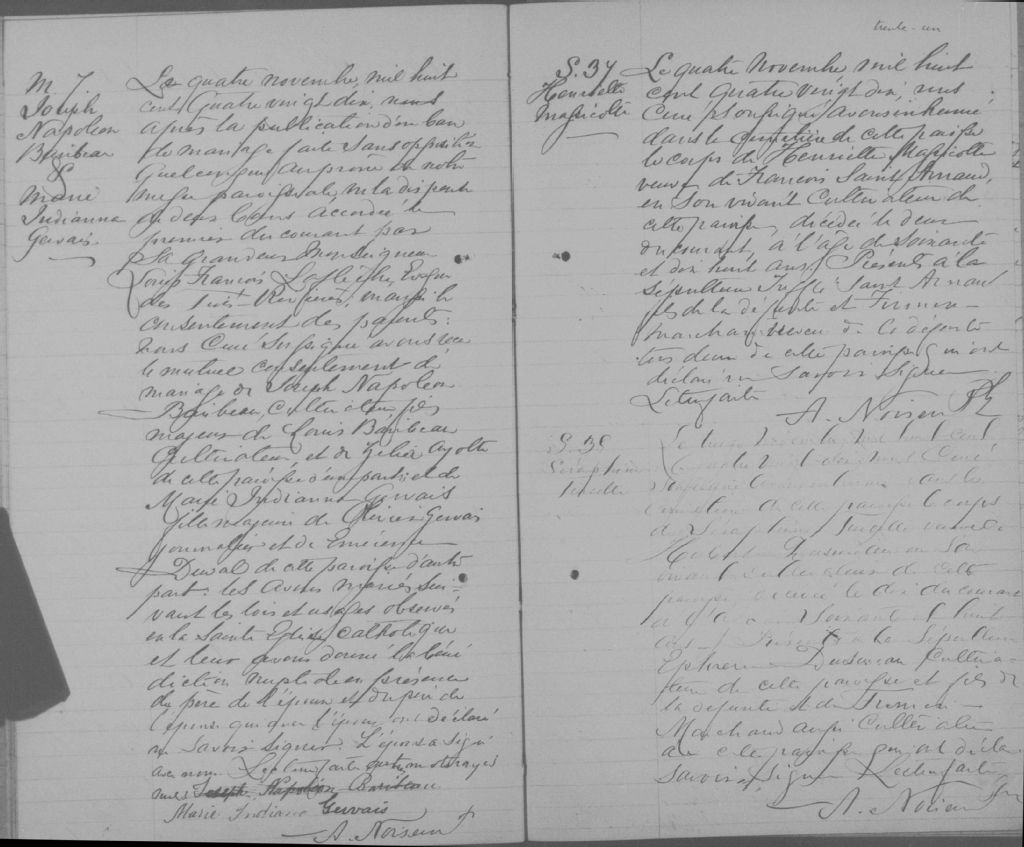 M 7.
Joseph
Napoleon
Baribeau
&
Marie
Indianna
Gervais.
Le quatre novembre, mil huit
cent quatre vingt dix, nous
après la publication d'un ban
de mariage faite sans opposition
quelconque au prône de notre
messe paroissiale, vu la dispense
de deux bans accordée le
premier du courant par
Sa grandeur Monseigneur
Louis François Laflèche, Evêque
des Trois Rivières, vu aussi le
consentement des parents:
nous Curé soussigné avons reçu
le mutuel consentement de
mariage de Joseph Napoleon
Baribeau, cultivateur fils
majeur de Louis Baribeau
Cultivateur, et de
de cette paroisse d'une part et de
Marie Indianna Gervais
fille majeure de Olivier Gervais
journalier et de Emérence
Duval de cette paroisse d'autre
part: les avons mariés sui-
vant les lois et usages observés
en la Sainte Eglise Catholique
et leur avons donné la béné
diction nuptiale en présence
du père de l'époux et du père de
l'épouse qui avec l'époux ont déclaré
ne savoir signer. L'épouse a signé
avec nous. Lecture faite
nuls Joseph Napoléon Baribeau
Marie Indiana Gervais
A. Noiseux Ptr
trente-un
S. 37
Henriette
Massicotte
Le quatre Novembre mil huit
cent quatre vingt dix, nous
Curé soussigné avons inhumé
dans le cimetière de cette paroisse
le corps de Henriette Massicotte
veuve de François Saint Arnaud,
en son vivant Cultivateur de
cette paroisse, décédée le deux
du courant, à l'âge de soixante
et dix huit ans. Présents à la
sépulture Saint Arnaud
fils de la défunte et Firmin
Marchand neveu de la défunte
tous deux de cette paroisse qui ont
déclaré ne savoir signer
Lecture faite
A. Noiseux Ptr
S. 38
Séraphine
Le novembre mil huit cent
quatre vingt dix nous Curé
soussigné avons inhumé dans le
cimetière de cette paroisse le corps
de Séraphine veuve de
en son
vivant cultivateur de cette
paroisse décédée le dix du courant
à l'âge de soixante et huit
ans. Présents à la sépulture
Ephrem Cultiva-
teur de cette paroisse et fils de
la défunte et de Firmin
Marchand aussi Cultivateur
de cette paroisse qui ont déclaré
savoir signer Lecture faite
A. Noiseux Ptr